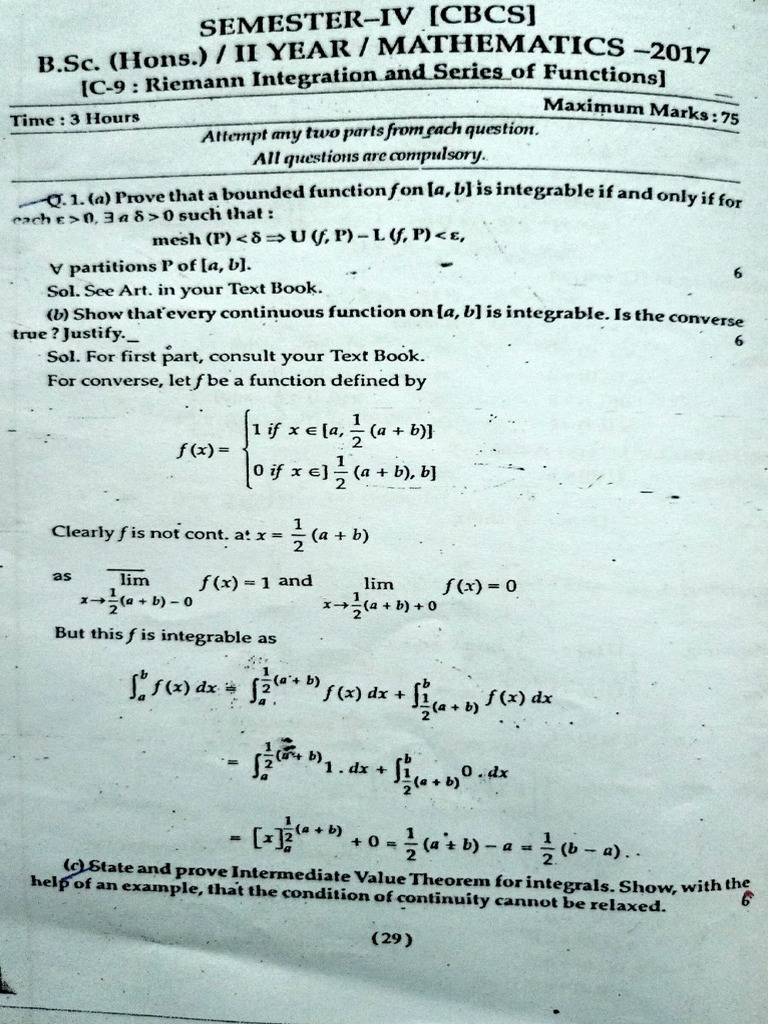 SEMESTER–IV [CBCS]
B.Sc. (Hons.) / II YEAR / MATHEMATICS –2017
[C-9 : Riemann Integration and Series of Functions]
Time : 3 Hours Maximum Marks : 75
Attempt any two parts from each question.
All questions are compulsory.
Q. 1. (a) Prove that a bounded function f on [a, b] is integrable if and only if for
each ε > 0, ∃ a δ > 0 such that :
mesh (P) < δ ⇒ U (f, P) – L (f, P) < ε,
∀ partitions P of [a, b]. 6
Sol. See Art. in your Text Book.
(b) Show that every continuous function on [a, b] is integrable. Is the converse
true ? Justify. 6
Sol. For first part, consult your Text Book.
For converse, let f be a function defined by
f (x) = { 1 if x ∈ [a, 1/2 (a + b)]
0 if x ∈] 1/2 (a + b), b]
Clearly f is not cont. at x = 1/2 (a + b)
as lim x→1/2(a + b) – 0 f (x) = 1 and lim x→1/2(a + b) + 0 f (x) = 0
But this f is integrable as
∫_a^b f (x) dx = ∫_a^{1/2(a + b)} f (x) dx + ∫_{1/2(a + b)}^b f (x) dx
= ∫_a^{1/2(a + b)} 1 . dx + ∫_{1/2(a + b)}^b 0 . dx
= [x]_a^{1/2(a + b)} + 0 = 1/2 (a + b) – a = 1/2 (b – a) . .
(c) State and prove Intermediate Value Theorem for integrals. Show, with the
help of an example, that the condition of continuity cannot be relaxed. 6
(29)